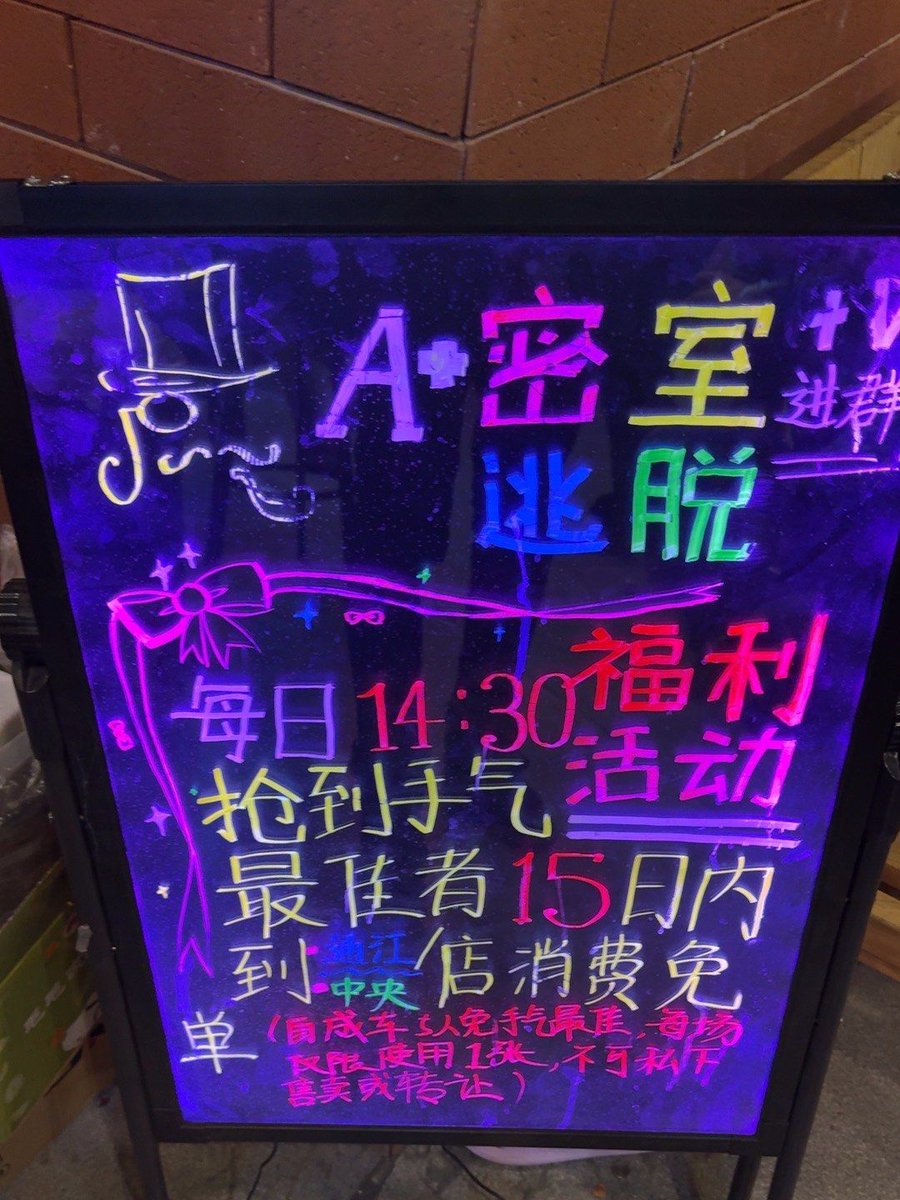 A+密室 +V
逃脱 进群
福利
活动
每日14:30
抢到手气
最佳者15日内
到通江/店消费免
中央
单
(自成车可免手气最佳,每场
仅限使用1张,不可私下
售卖或转让)